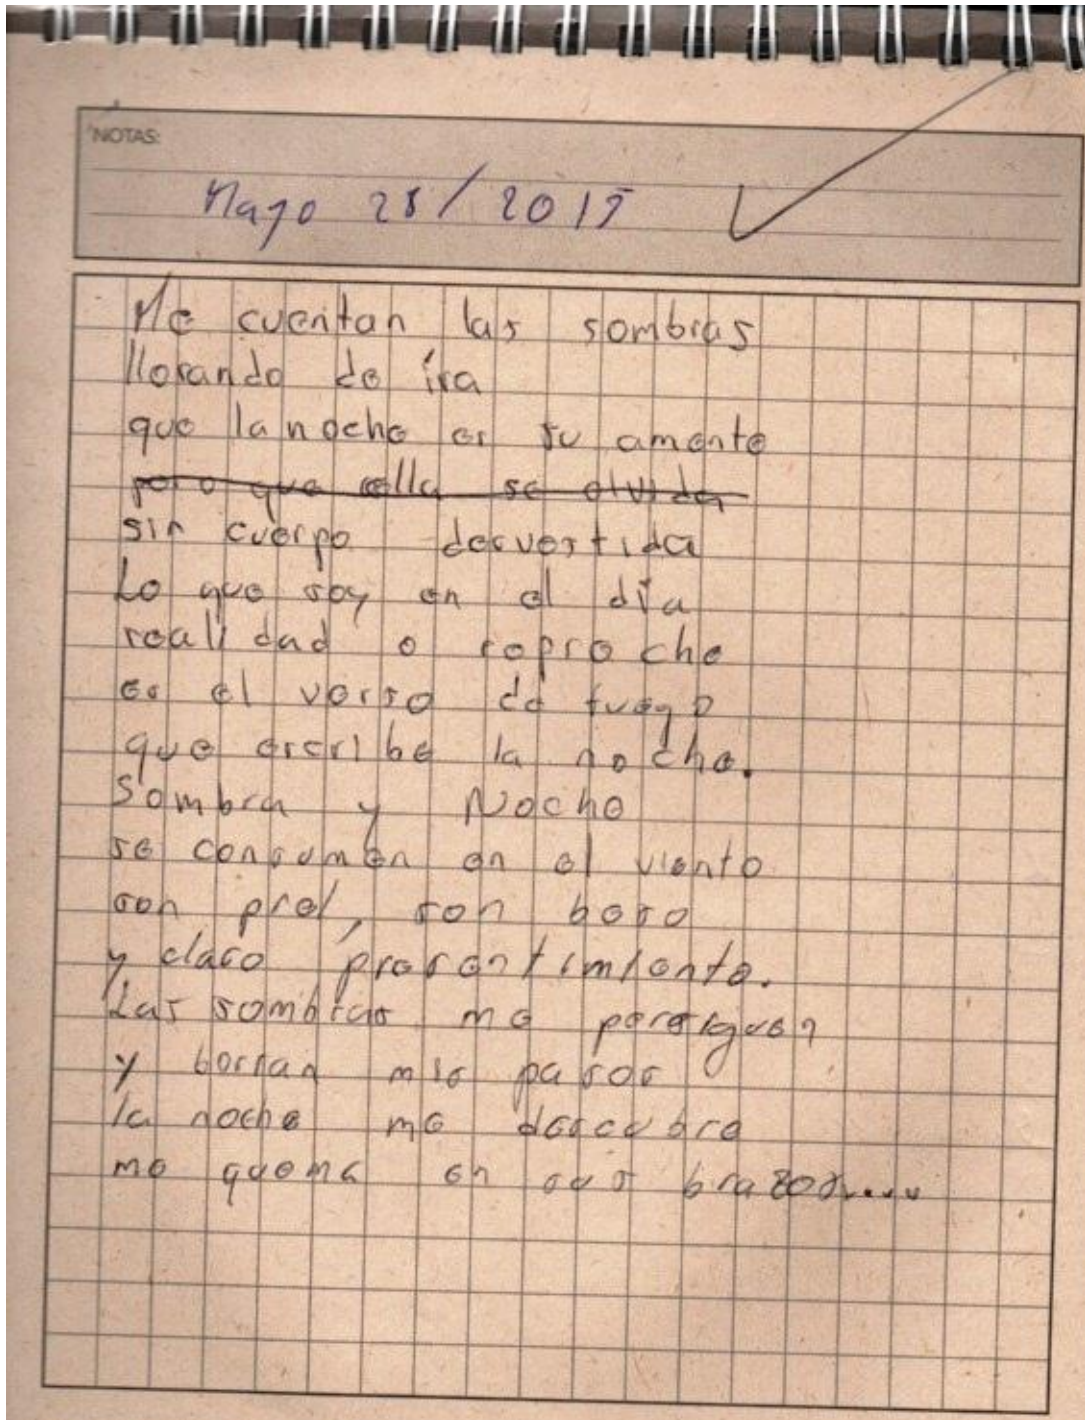 NOTAS:
Mayo 28/2015
Me cuentan las sombras
llorando de ira
que la noche es su amante
pero que ella se olvida
sin cuerpo desvestida
Lo que soy en el día
realidad o reproche
es el verso de fuego
que escribe la noche.
Sombra y Noche
se consumen en el viento
son piel, son beso
y claro presentimiento.
Las sombras me persiguen
y borran mis pasos
la noche me descubre
me quema en sus brazos....